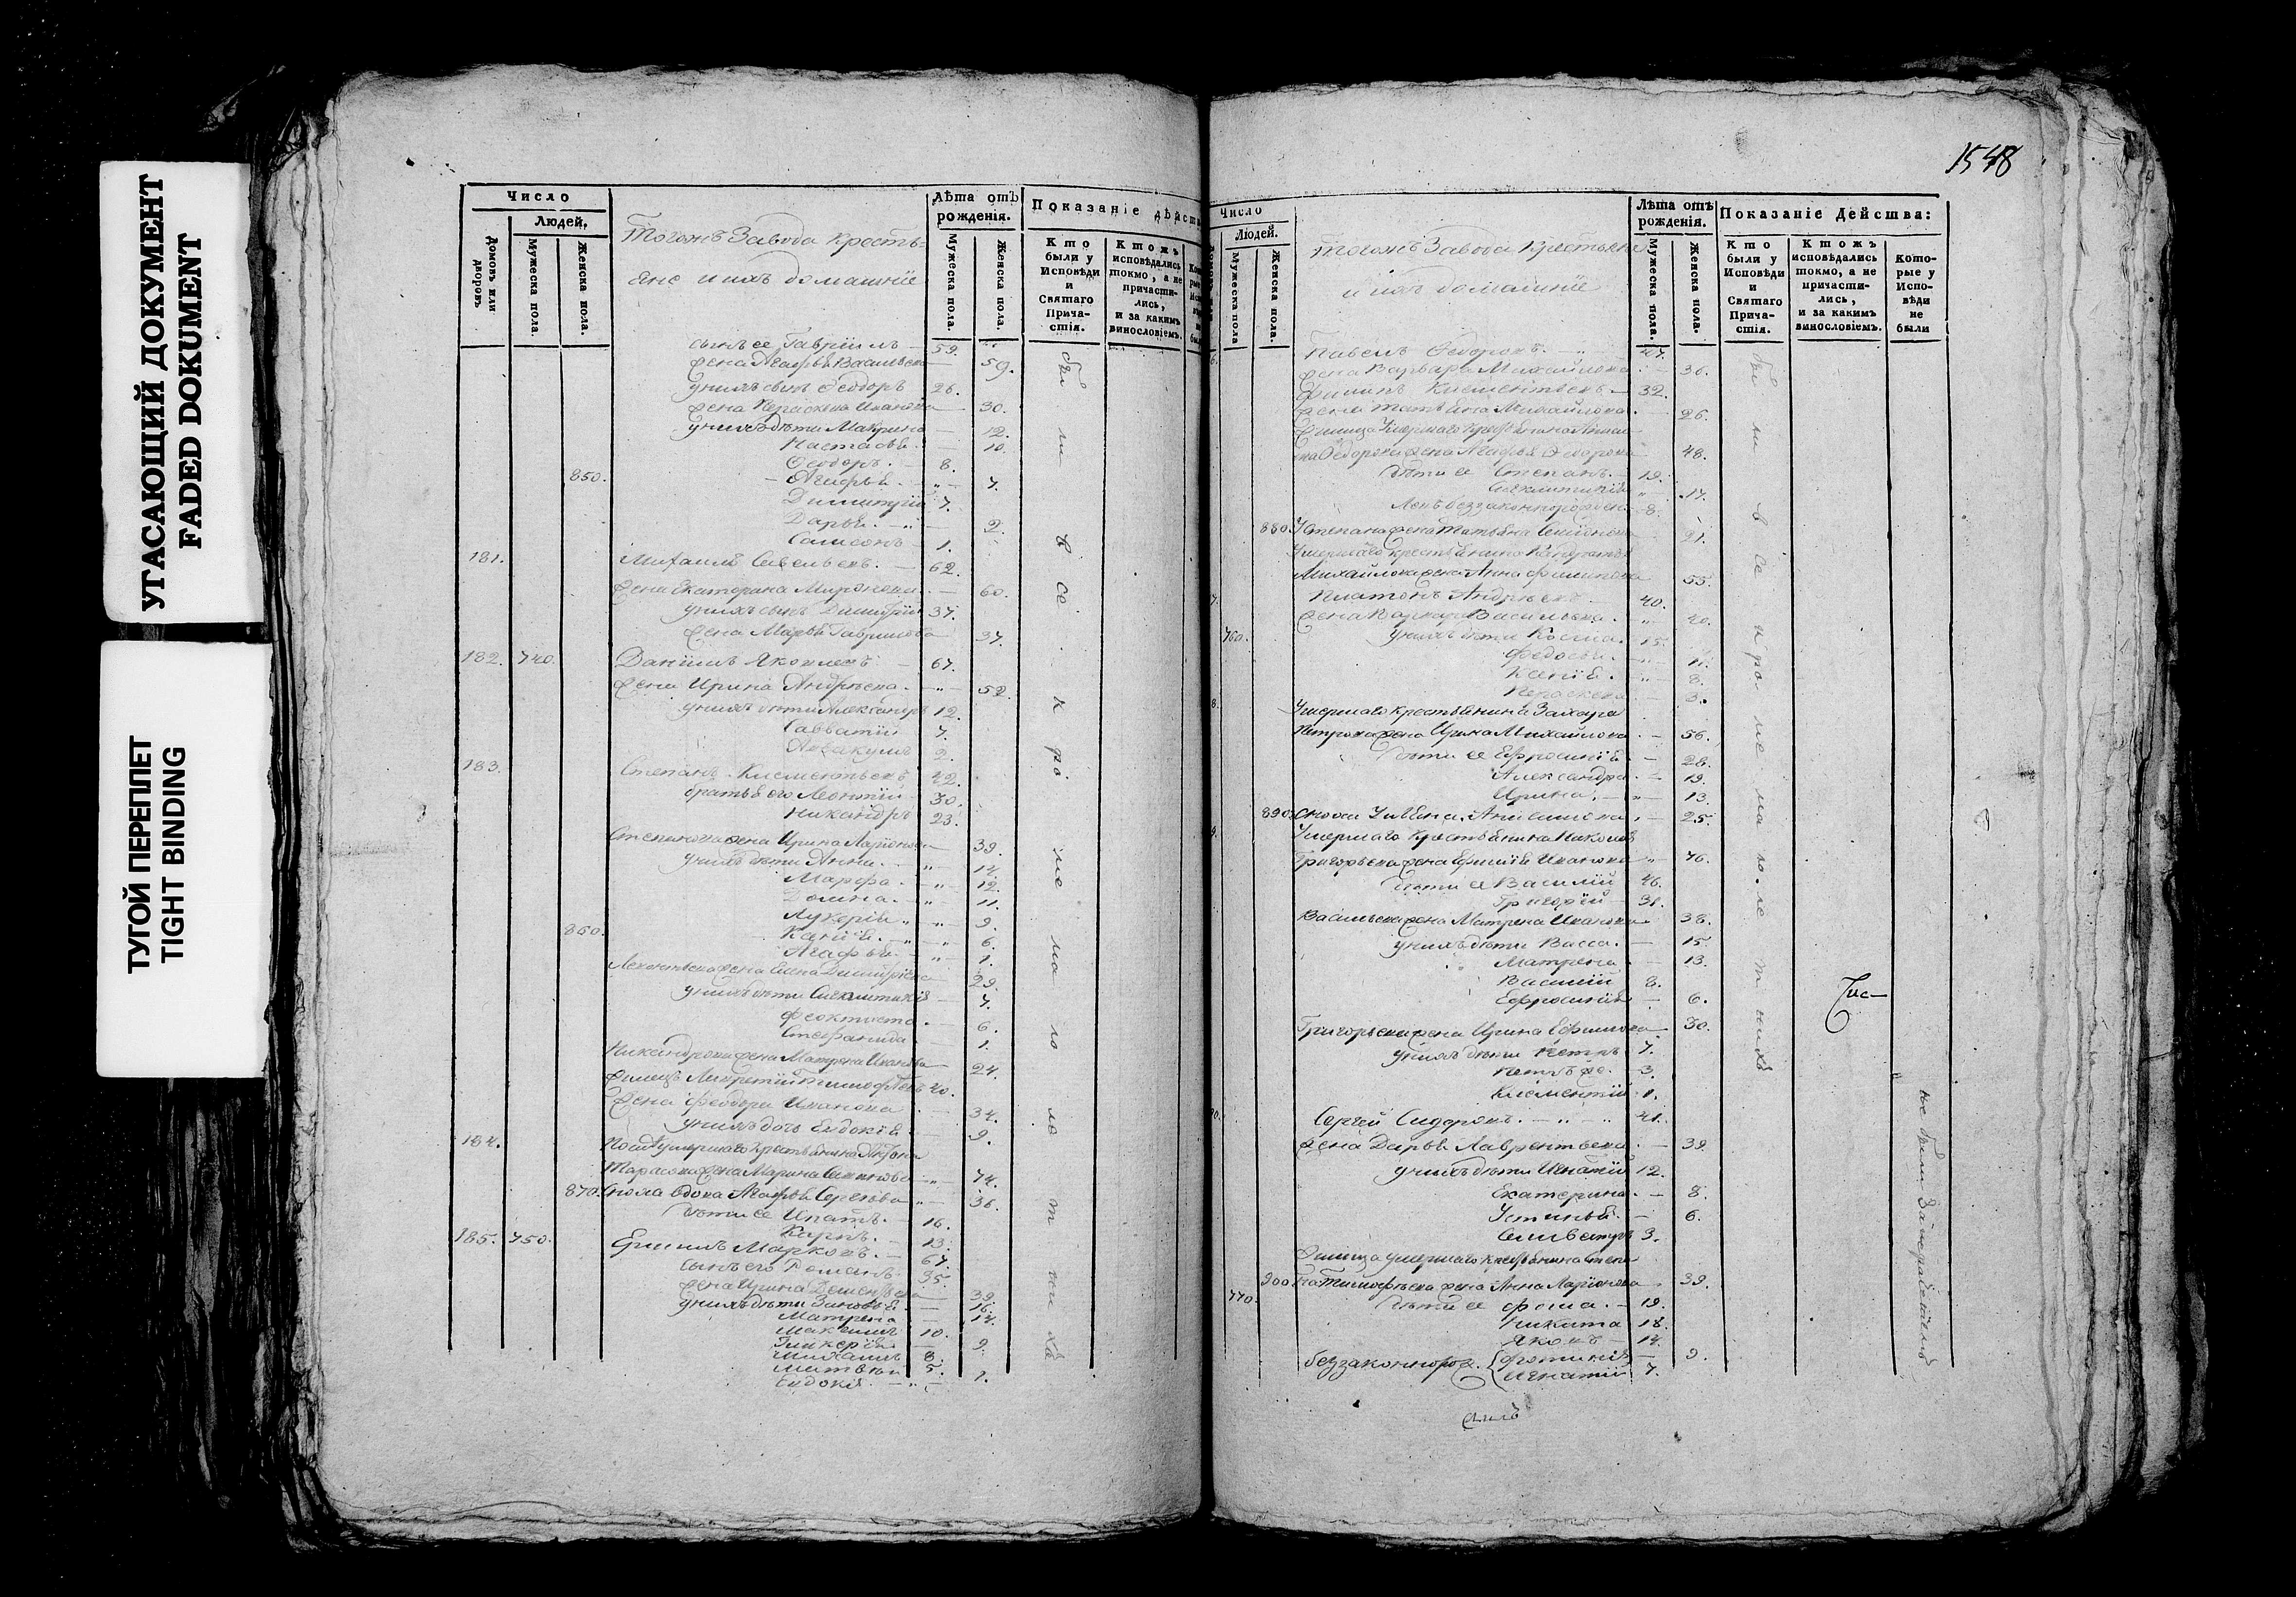 УГАСАЮЩИЙ ДОКУМЕНТ
FADED DOKUMENT
ТУГОЙ ПЕРЕПЛЕТ
TIGHT BINDING
Число
Людей.
Домовъ или дворовъ
Мужеска пола.
Женска пола.
Тогожъ Завода Кресть-
яне и ихъ домашніе
Лѣта отъ рожденія.
Мужеска пола.
Женска пола.
Показаніе дѣйств
Кто были у Исповѣди и Святаго Прича-стія.
Ктожъ исповѣдались токмо, а не причасти-лись, и за какимъ винословіемъ.
сынъ ее Гавріилъ 59.
жена Агафья Васильева 59.
у нихъ сынъ Феодоръ 26.
жена Параскева Иванова 30.
у нихъ дѣти Макрина 12.
Настасья 10.
Феодоръ 8.
850. Агафья 7.
Димитрій 7.
Дарья 2.
Самсонъ 1.
181. Михаилъ Савельевъ 62.
жена Екатерина Миронова 60.
у нихъ сынъ Димитрій 37.
жена Марья Гаврилова 37.
182. 740. Даніилъ Яковлевъ 67.
жена Ирина Андрѣева 52.
у нихъ дѣти Александръ 12.
Савватій 7.
Аввакумъ 2.
183. Степанъ Климентьевъ 42.
братья его Леонтій 30.
Никандръ 23.
Степанова жена Ирина Ларіонова 39.
у нихъ дѣти Анна 14.
Марфа 12.
Домна 11.
Лукерія 9.
860. Ксенія 6.
Агафья 1.
Леонтьева жена Елена Димитріева 29.
у нихъ дѣти Синклитикія 7.
Феоктиста 6.
Стефанида 1.
Никандрова жена Матрена Иванова 24.
жилецъ Лаврентій Тимофѣевъ 40.
жена Феодора Иванова 34.
у нихъ дочь Евдокія 9.
184. Умершаго Крестьянина
Тарасова жена Марина Семенова 74.
870. сноха вдова Агафья Сергѣева 36.
дѣти ее Ипатъ 16.
Карпъ 13.
185. 750. Ермилъ Марковъ 67.
сынъ его Романъ 35.
жена Ирина Дементьева 39.
у нихъ дѣти Зиновья 16.
Матрена 14.
Максимъ 10.
Гликерія 9.
Михаилъ 8.
5.
Евдокія 1.
бы ли в се к ро ме ма ло ле т ни хъ
1548
Число
Людей.
Мужеска пола
Женска пола.
Тогожъ Завода Крестьяне
и ихъ домашніе
Лѣта отъ рожденія.
Мужеска пола.
Женска пола.
Показаніе Действа:
Кто были у Исповѣди и Святаго Прича-стія.
Ктожъ исповѣдались токмо, а не причасти-лись, и за какимъ винословіемъ.
Кото-рые у Испо-вѣди не были
Павелъ Федоровъ 47.
жена Варвара Михайлова 36.
Филипъ Климентьевъ 32.
жена Татьяна Михайлова 26.
Жилица Умершаго Крестьянина
Федорова жена Агафья Федорова 48.
дѣти ее Степанъ 19.
Синклитикія 17.
незаконнорожден 8.
880. Степана жена Татьяна Семенова 21.
Умершаго крестьянина
Михайлова жена Анна Филипова 55.
Платонъ Андрѣевъ 40.
жена Варвара Васильева 40.
760. у нихъ дѣти Косма 15.
Федосья 11.
Ксенія 8.
Параскева 3.
Умершаго Крестьянина Захара
Петрова жена Ирина Михайлова 56.
дѣти ее Ефросинія 28.
Александра 19.
Ирина 13.
890. сноха Ульяна Анисимова 25.
Умершаго Крестьянина Николая
Григорьева жена Ефимія Иванова 76.
дѣти ее Василій 46.
Григорій 31.
Васильева жена Матрена Иванова 38.
у нихъ дѣти Васса 15.
Матрена 13.
Василій 8.
Ефросинія 6.
Григорьева жена Ирина Ефимова 30.
у нихъ дѣти Петръ 7.
Петръ же 3.
Климентій 1.
Сергѣй Сидоровъ 41.
жена Дарья Лаврентьева 39
у нихъ дѣти Игнатій 12.
Екатерина 8.
Устинья 6.
Силвестръ 3.
Жилица умершаго Крестьянина Степа
900 на Тимофѣева жена Анна Ларіонова 39.
770. дѣти ее Фома 19.
Никита 18.
Яковъ 14.
беззаконнорож. Фотинія 9.
Игнатій 7.
бы ли в се к ро ме ма ло ле т нихъ
не были за нерадѣніемъ